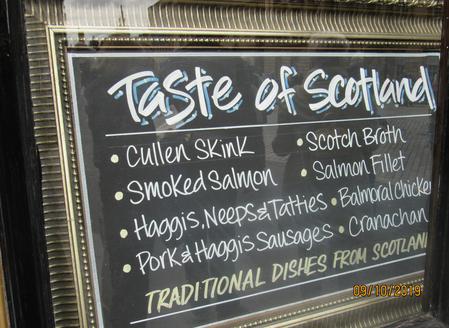 Taste of Scotland
• Cullen Skink
• Smoked Salmon
• Haggis, Neeps & Tatties
• Pork & Haggis Sausages
• Scotch Broth
• Salmon Fillet
• Balmoral Chicken
• Cranachan
TRADITIONAL DISHES FROM SCOTLAND
09/10/2019